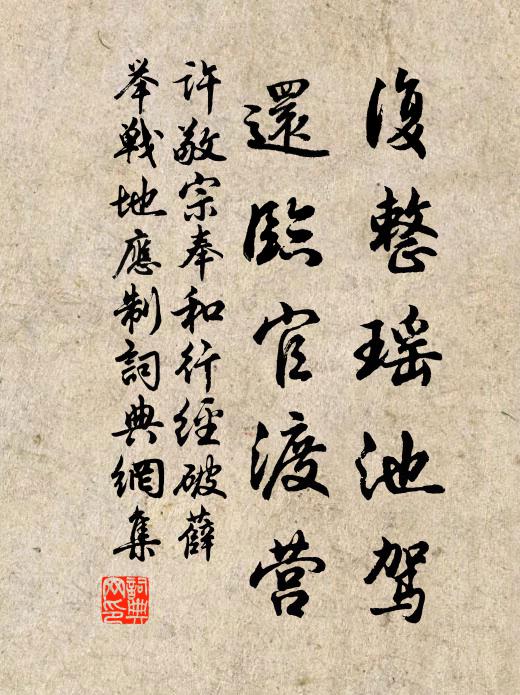 復整瑶池驾
還臨官渡营
許敬宗奉和行經破薛
举戰地應制詞典網集
詞典網印